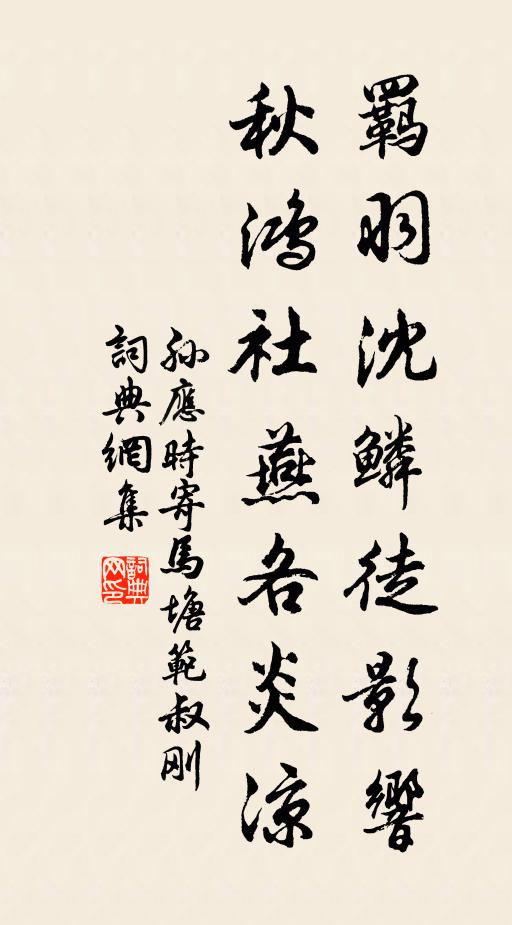 羈羽沈鱗徒影響
秋鴻社燕各炎涼
孫應時寄馬塘範叔剛
詞典網集
詞典网印